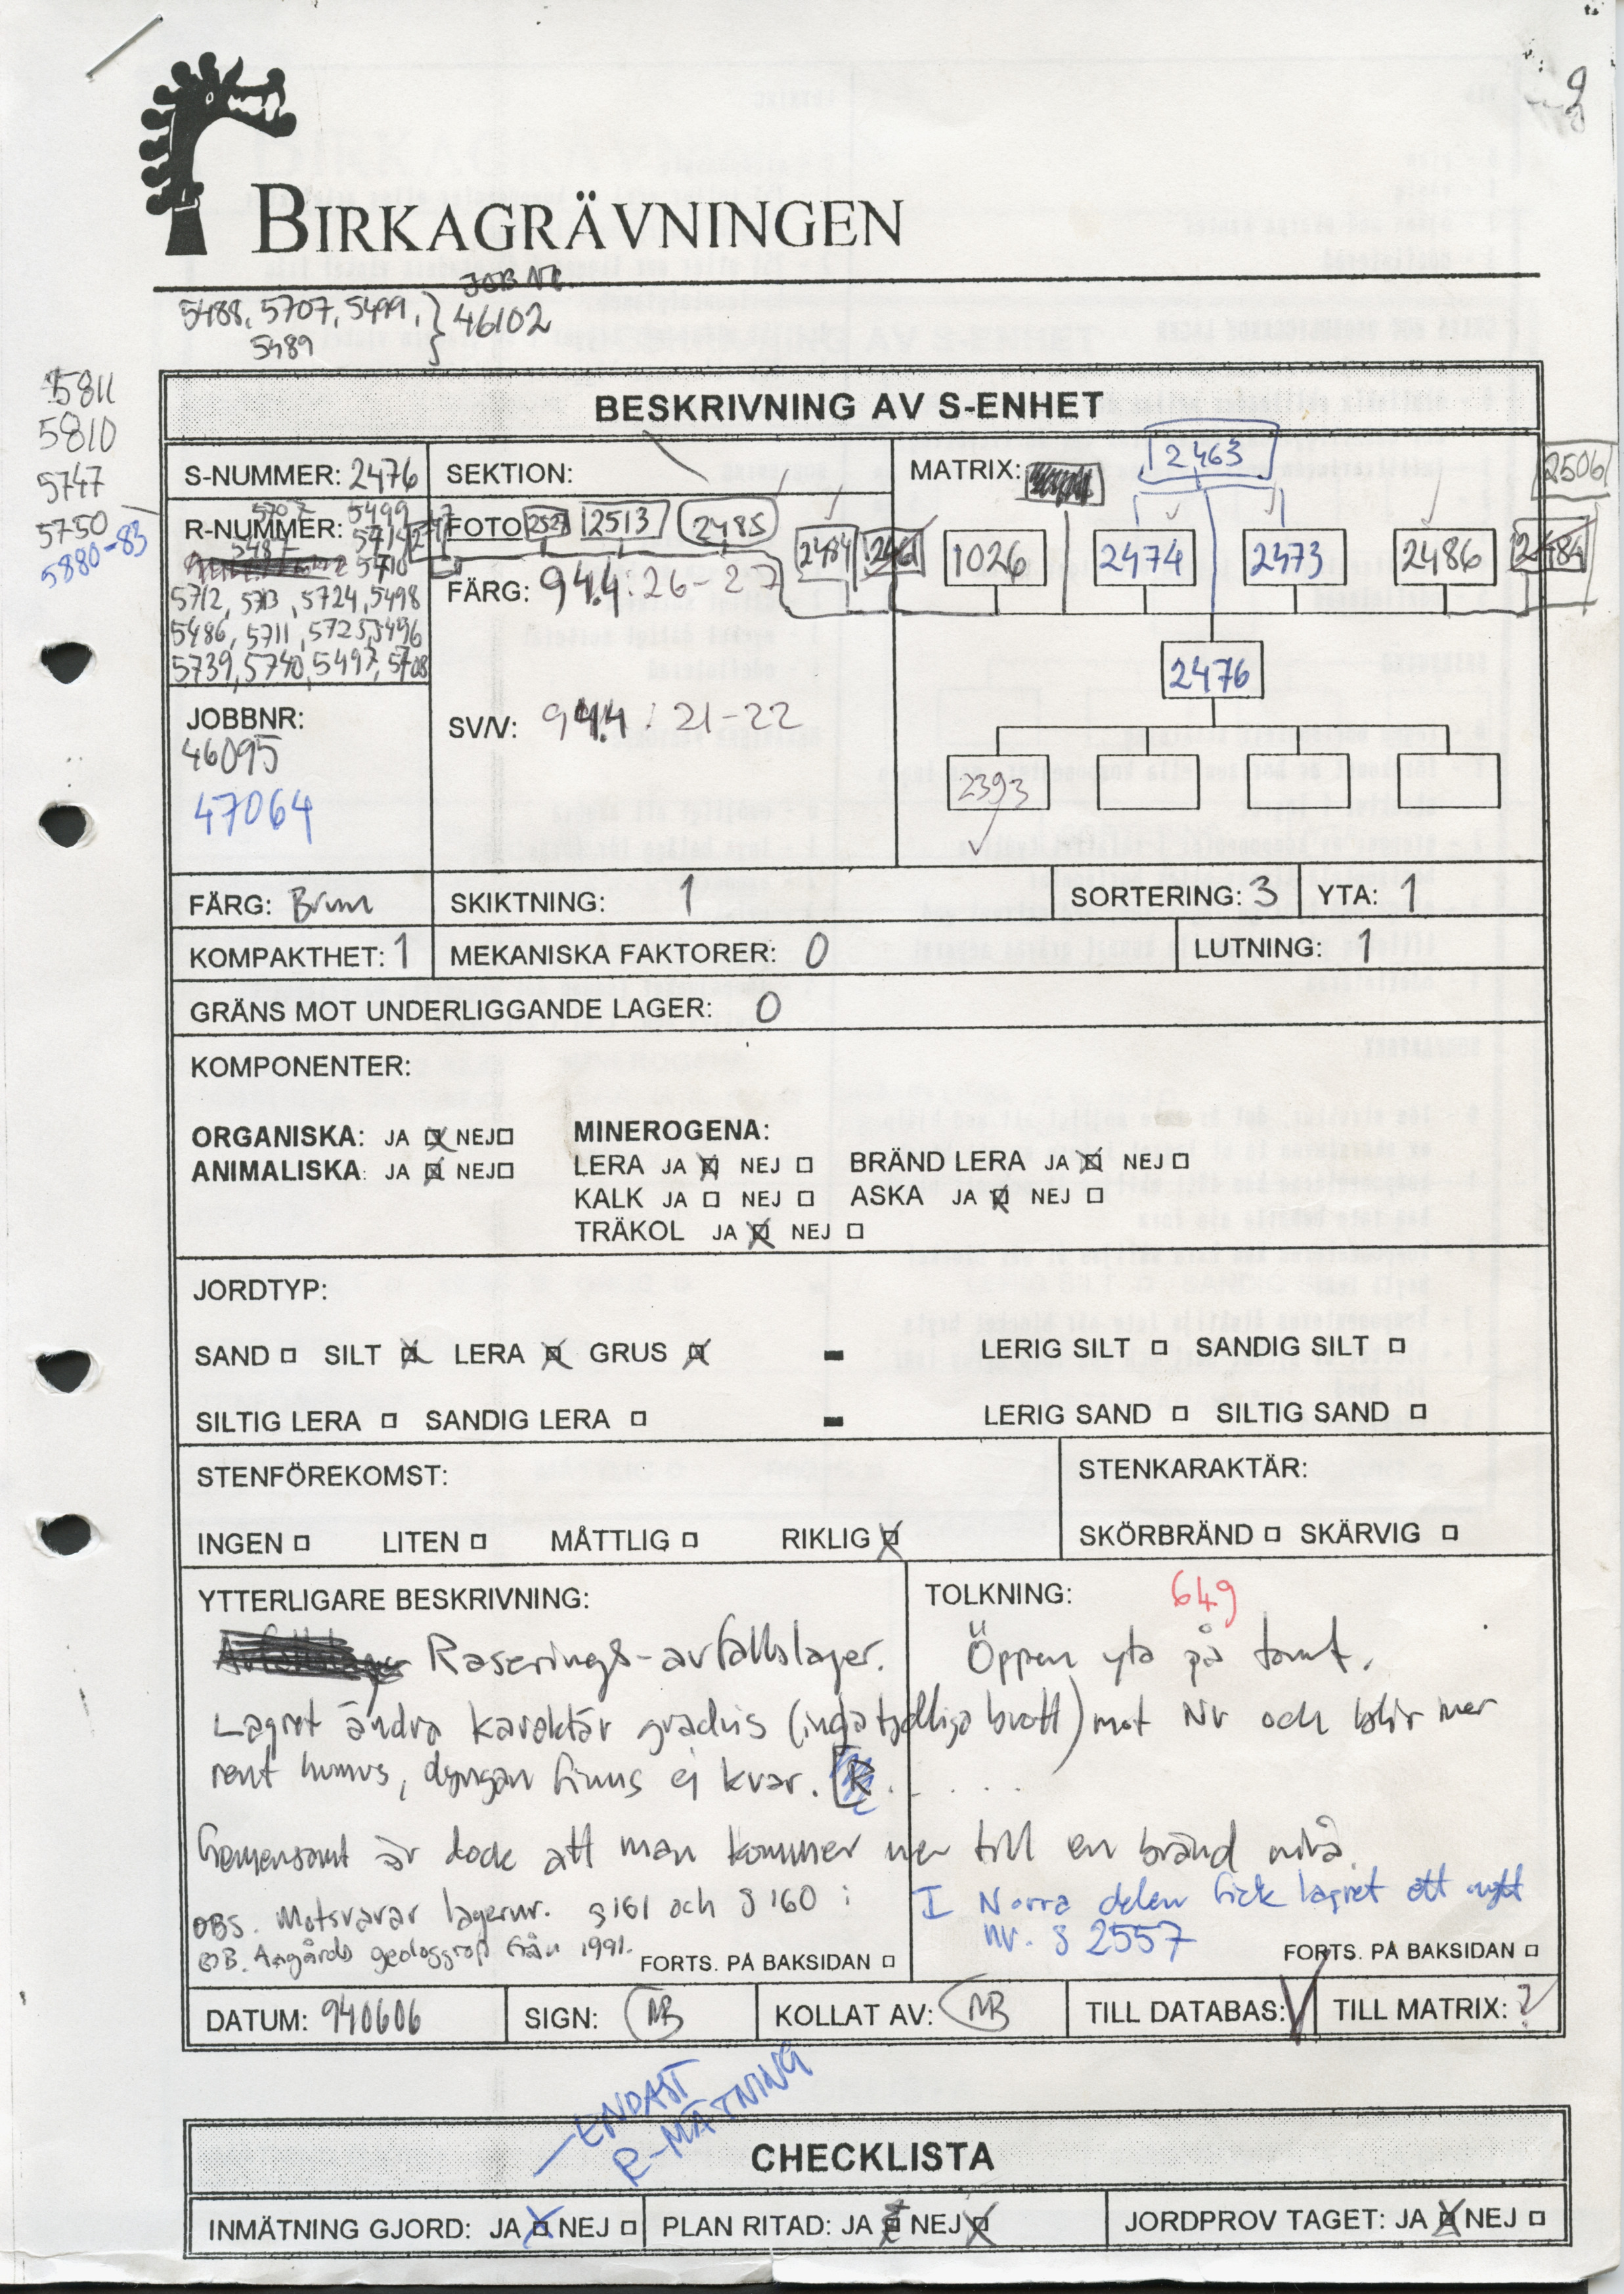 9
BIRKAGRÄVNINGEN
JOB NR.
5488, 5707, 5499, } 46102
5489
5811
5810
5747
5750
5880-83
BESKRIVNING AV S-ENHET
S-NUMMER: 2476
SEKTION:
MATRIX:
2463
2506
R-NUMMER: 5707 5499
5487 5714
5710
5712, 5713, 5724, 5498
5486, 5711, 5725, 5496
5739, 5740, 5497, 5708
FOTO 2527 2513 2485
2484 2461 1026 2474 2473 2486 2484
FÄRG: 94.4:26-27
2476
SV/V: 94.4:21-22
2393
JOBBNR:
46095
47064
FÄRG: Brun SKIKTNING: 1 SORTERING: 3 YTA: 1
KOMPAKTHET: 1 MEKANISKA FAKTORER: 0 LUTNING: 1
GRÄNS MOT UNDERLIGGANDE LAGER: 0
KOMPONENTER:
ORGANISKA: JA NEJ MINEROGENA:
ANIMALISKA: JA NEJ LERA JA NEJ BRÄND LERA JA NEJ
KALK JA NEJ ASKA JA NEJ
TRÄKOL JA NEJ
JORDTYP:
SAND SILT LERA GRUS - LERIG SILT SANDIG SILT
SILTIG LERA SANDIG LERA - LERIG SAND SILTIG SAND
STENFÖREKOMST: STENKARAKTÄR:
INGEN LITEN MÅTTLIG RIKLIG SKÖRBRÄND SKÄRVIG
YTTERLIGARE BESKRIVNING: TOLKNING: 649
Raserings-avfallslager. Öppen yta på tomt.
Lagret ändra karaktär gradvis (inga tydliga brott) mot NV och blir mer
rent humus, dyngan finns ej kvar.
Gemensamt är dock att man kommer ner till en bränd nivå.
OBS. Motsvarar lagernr. S161 och S160 i
I Norra delen fick lagret ett nytt
nr. S 2557
geologgrop från 1991.
FORTS. PÅ BAKSIDAN FORTS. PÅ BAKSIDAN
DATUM: 940606 SIGN: MB KOLLAT AV: MB TILL DATABAS: TILL MATRIX: ?
ENDAST
R-MÄTNING
CHECKLISTA
INMÄTNING GJORD: JA NEJ PLAN RITAD: JA NEJ JORDPROV TAGET: JA NEJ